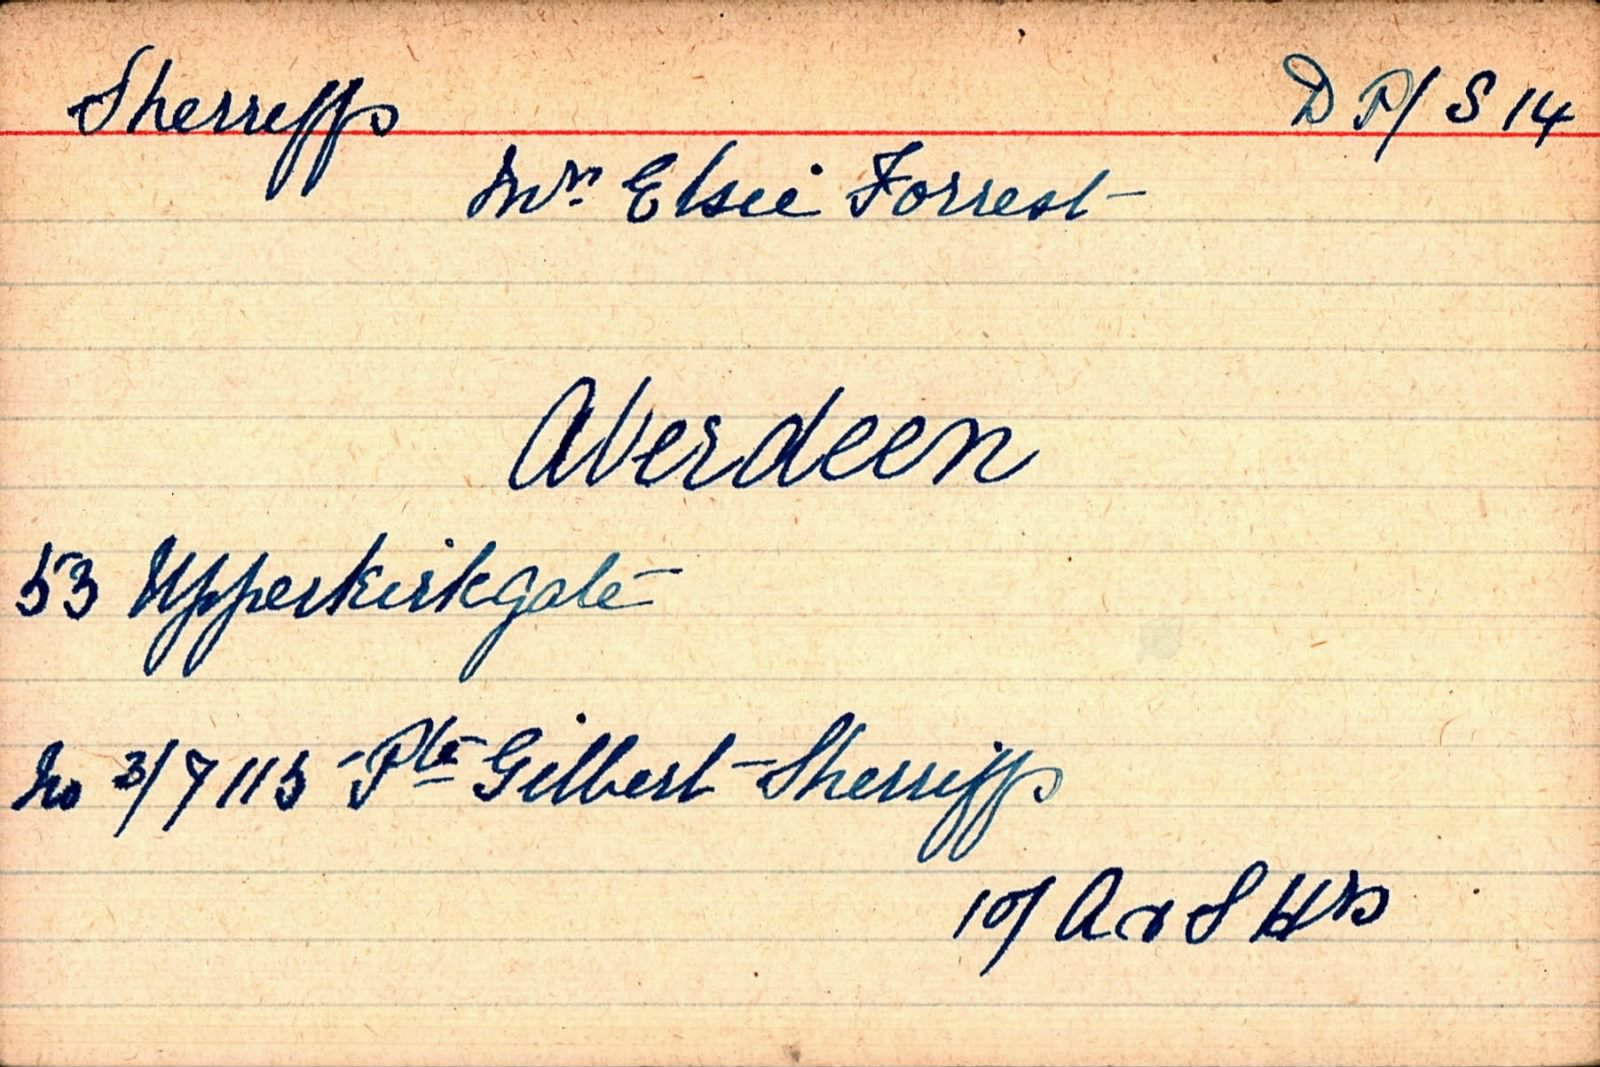 Sherreffs D P/ S 14
Mrs. Elsie Forrest
Aberdeen
53 Upperkirkgate
No 3/7113 Pte Gilbert Sherriffs
10/ A & S Hrs